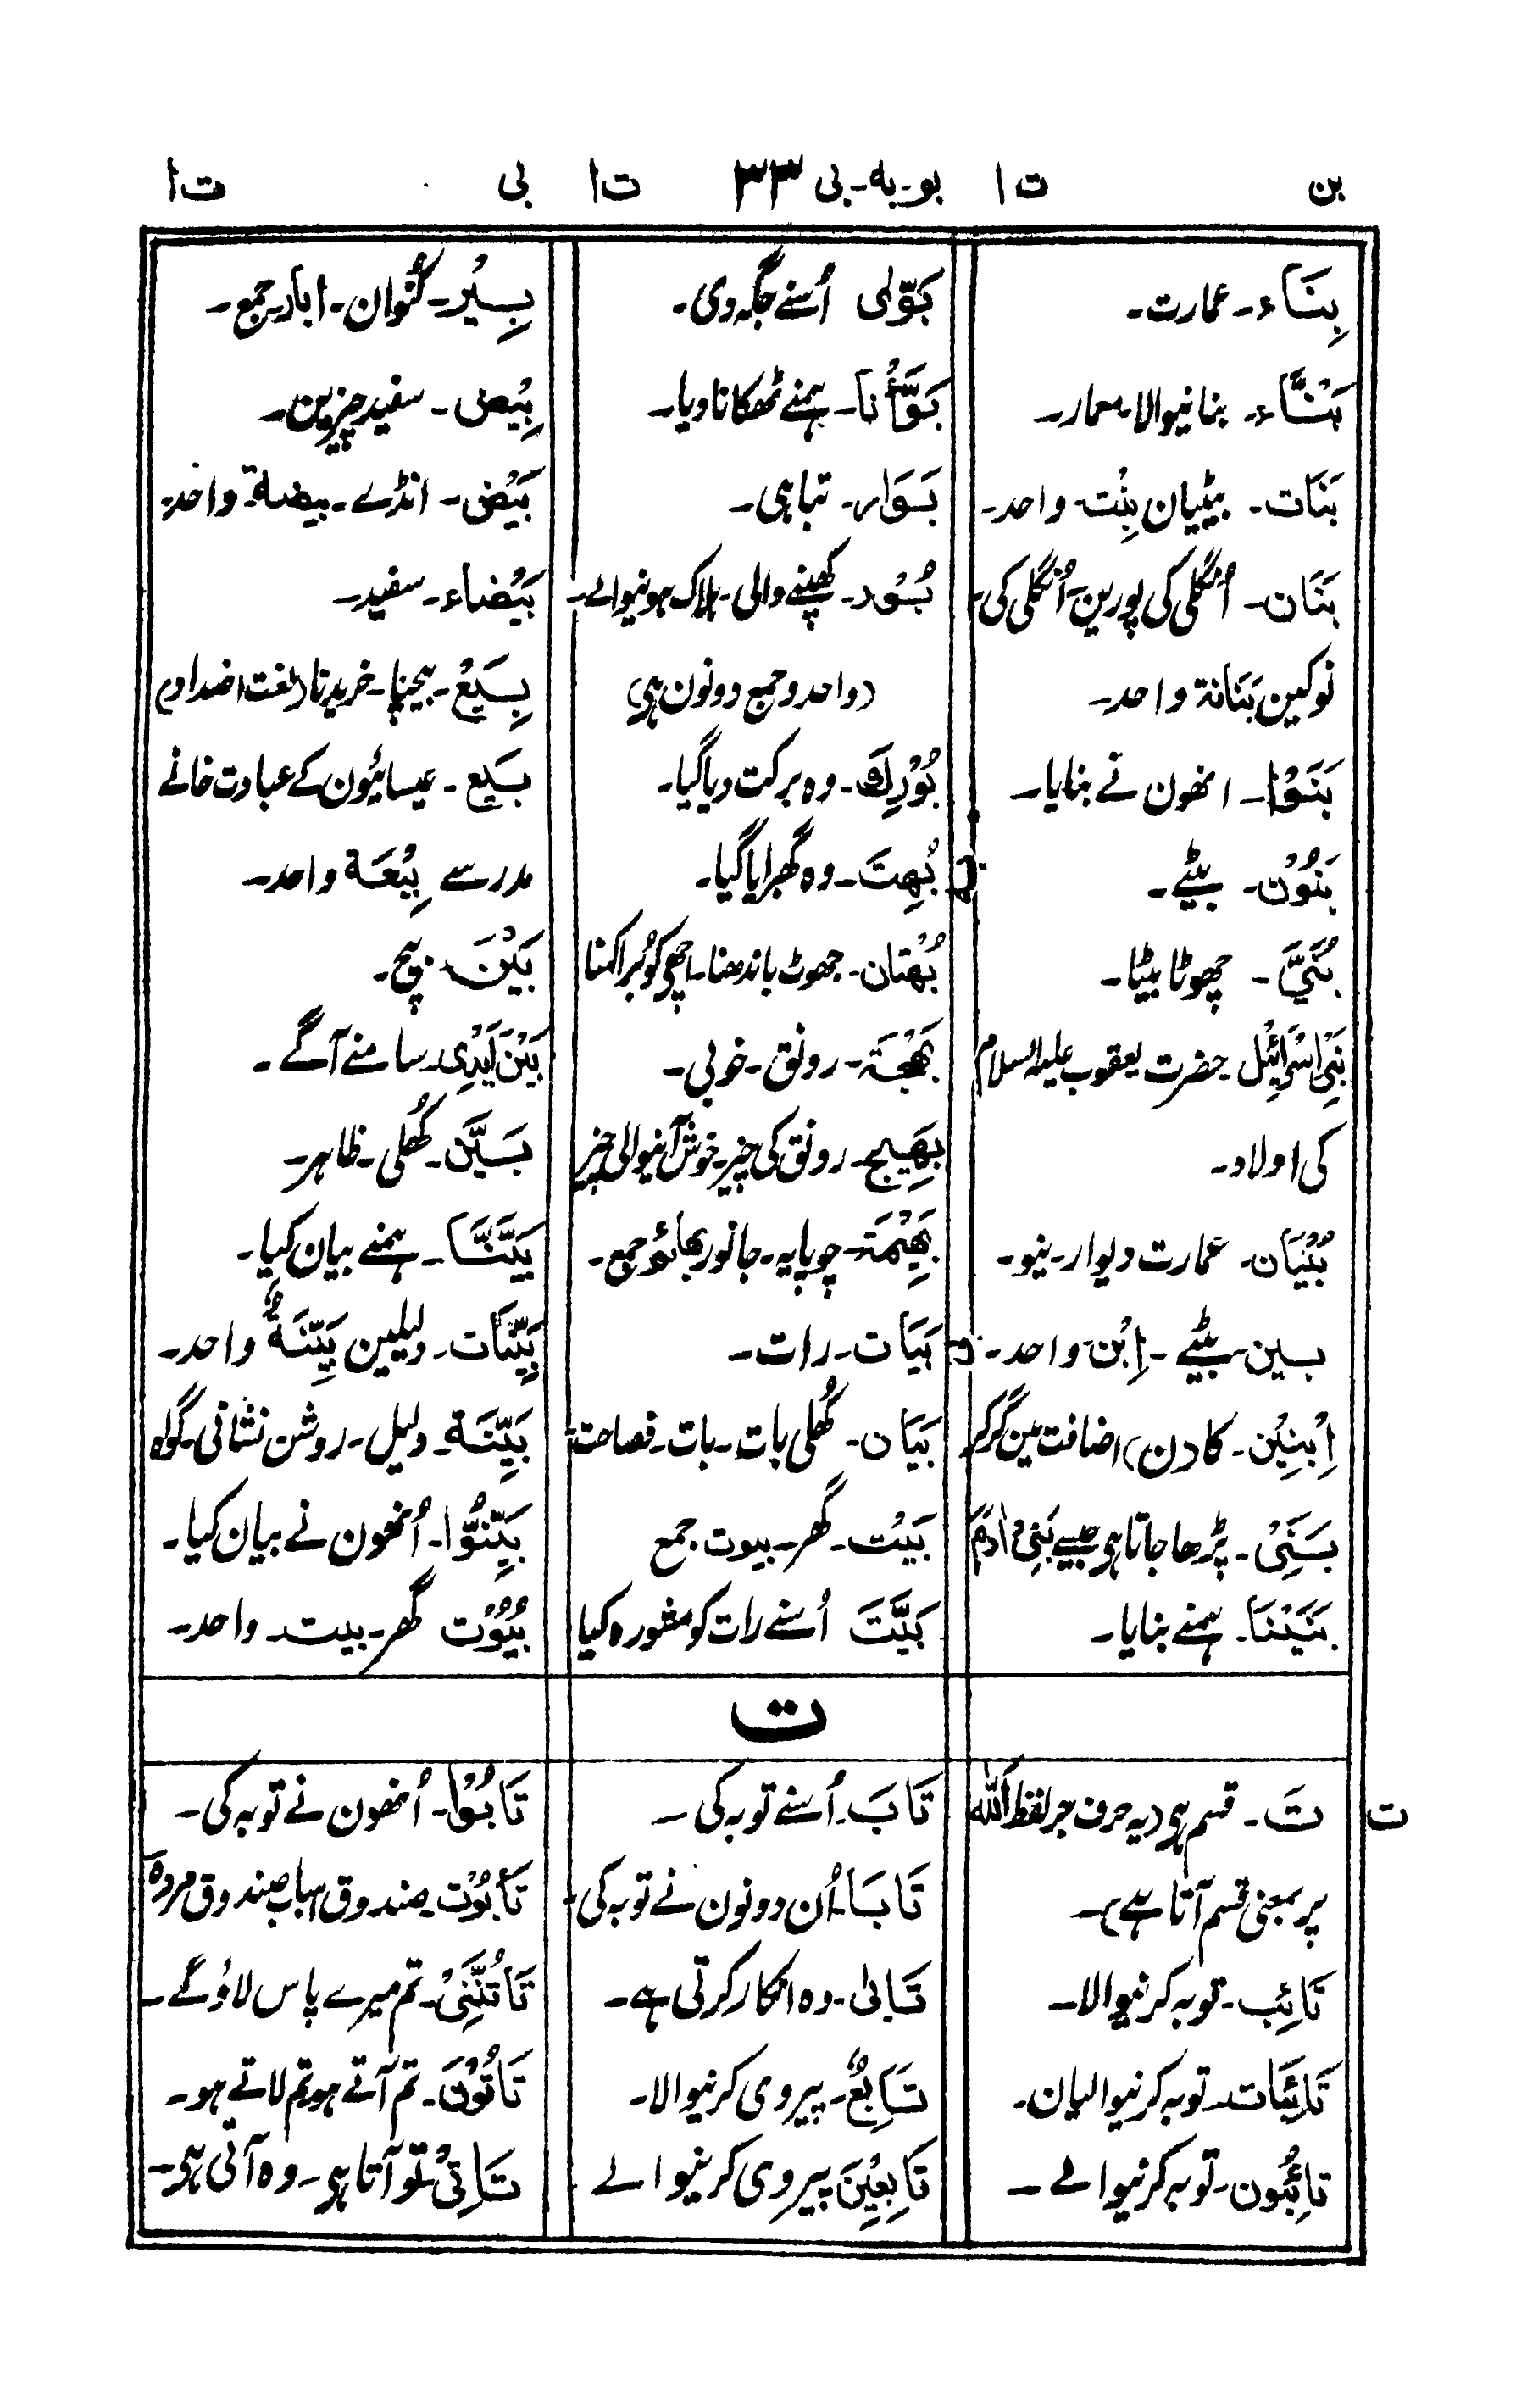 بن ت ا بو۔ بہ۔ بی ۳۳ ت ا بی ت ا
بِنَاء۔ عمارت۔
بَنَّاء۔ بنانیوالا۔ معمار۔
بَنَات۔ بیٹیان بِنْت۔ واحد۔
بَنَان۔ اُنگلی کی پورین۔ اُنگلی کی
نوکین بَنَانة واحد۔
بَنَوْا۔ انھون نے بنایا۔
بَنُوْن۔ بیٹے۔
بُنَيَّ۔ چھوٹا بیٹا۔
بَنِیْ اِسْرَائِیْل۔ حضرت یعقوب علیہ السلام
کی اولاد۔
بُنْیَان۔ عمارت دیوار۔ نیو۔
بـنین۔ بیٹے۔ اِبْن واحد۔
اِبْنِیْن۔ کا (ن) اضافت مین گرکر
بَنِیْ۔ پڑھا جاتا ہی جیسے بَنِیْ اٰدَمَ
بَنَیْنَا۔ ہمنے بنایا۔
بَوّٰی اُسنے جگہ دی۔
بَوَّأْنَا۔ ہمنے ٹھکانا دیا۔
بَوَار۔ تباہی۔
بُوْر۔ کھپنے والی۔ ہلاک ہونیوالے۔
(واحد و جمع دونون ہی)
بُوْرِكَ۔ وہ برکت دیا گیا۔
بُهِتَ۔ وہ گھبرایا گیا۔
بُهْتَان۔ جھوٹ باندھنا۔ اچھی کو بُرا کہنا
بَهْجَة۔ رونق۔ خوبی۔
بَهِيج۔ رونق کی چیز۔ خوش آنیوالی چیز
بَهِيْمَة۔ چوپایہ۔ جانور بهائم جمع۔
بَیَات۔ رات۔
بَیَان۔ کُھلی بات۔ بات۔ فصاحت۔
بَیْت۔ گھر۔ بیوت جمع
بَیَّتَ اُسنے رات کو مشورہ کیا
بِـئْر۔ کُنوان۔ ابار۔ جمع۔
بِیْض۔ سفید چیزین۔
بَیْض۔ انڈے۔ بیضة۔ واحد۔
بَیْضاء۔ سفید۔
بَیْعُ۔ بیچنا۔ خریدنا (لغت اضداد)
بِیَع۔ عیسائیون کے عبادت خانے
مدرسے بِیْعَة واحد۔
بَیْنَ۔ بیچ۔
بَیْنَ اَیْدِی۔ سامنے آگے۔
بَـیَّن۔ کُھلی۔ ظاہر۔
بَیَّنَّا۔ ہمنے بیان کیا۔
بَیِّنَات۔ دلیلین بَیِّنَةٌ واحد۔
بَیِّنَة۔ دلیل۔ روشن نشانی۔ گواہ
بَیَّنُوْا۔ اُنھون نے بیان کیا۔
بُیُوْت گھر۔ بیت۔ واحد۔
ت
ت
تَ۔ قسم ہی (یہ حرف جر لفظ اَللّٰه
پر بمعنی قسم آتا ہے)۔
تَائِب۔ توبہ کرنیوالا۔
تَائِبَات۔ توبہ کرنیوالیان۔
تائِبُون۔ توبہ کرنیوالے۔
تَابَ۔ اُسنے توبہ کی۔
تَابَا۔ اُن دونون نے توبہ کی۔
تَابٰی۔ وہ انکار کرتی ہے۔
تَابِعٌ۔ پیروی کرنیوالا۔
تَابِعِیْنَ پیروی کرنیوالے
تَابُوْا۔ اُنھون نے توبہ کی۔
تَابُوْت۔ صندوق اسباب صندوق مردہ
تَاتُنَّنِیْ۔ تم میرے پاس لاؤگے۔
تَاتُوْنَ۔ تم آتے ہو تم لاتے ہو۔
تَاتِیْ۔ تو آتا ہی۔ وہ آتی ہی۔